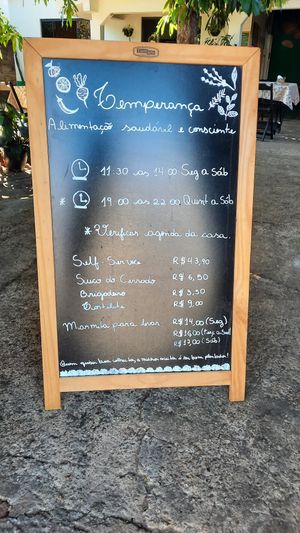 Temperança
Alimentação saudável e consciente
11:30 as 14:00 Seg a Sáb
* 19:00 as 22:00 Quint a Sáb
* Verificar agenda da casa.
Self-Service R$ 43,90
Suco do Cerrado R$ 6,50
Brigadeiro R$ 3,50
R$ 9,00
Marmita para levar R$ 14,00 (Seg)
R$ 16,00
R$ 17,00 (Sáb)